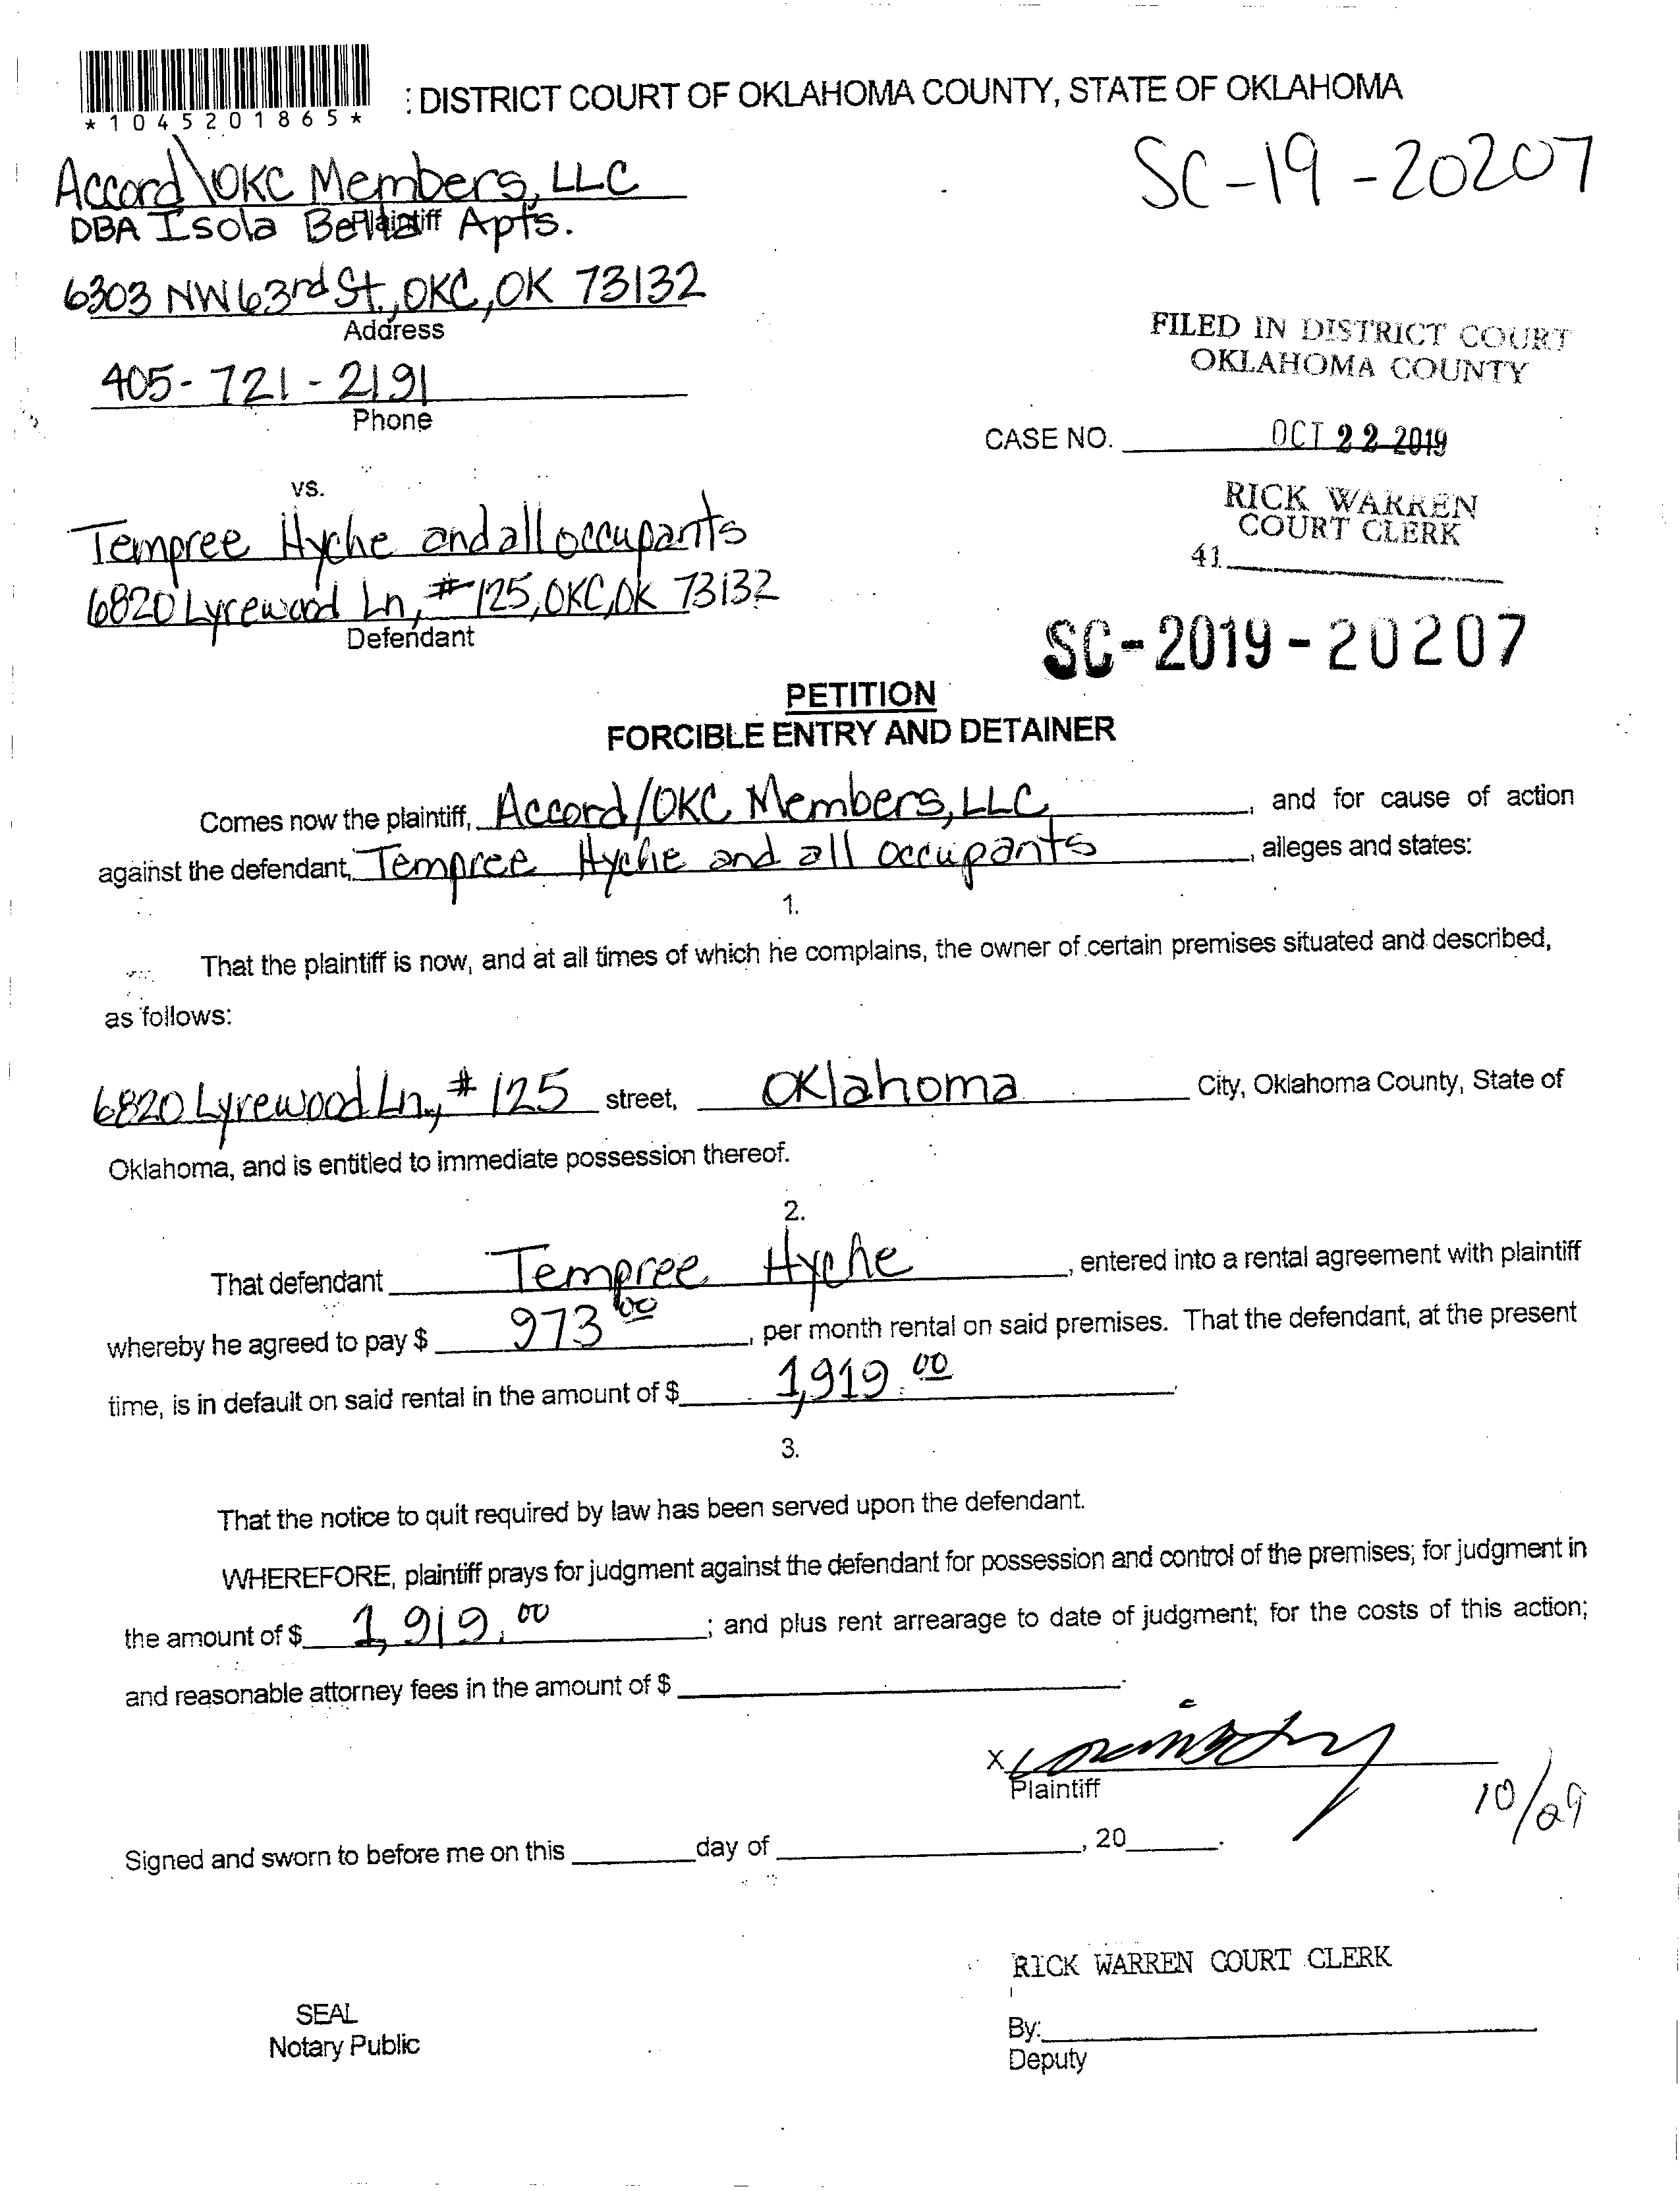 *1045201865*
: DISTRICT COURT OF OKLAHOMA COUNTY, STATE OF OKLAHOMA
SC-19-20207
Accord\OKC Members, LLC
DBA Isola Bella Apts.
Plaintiff
6303 NW 63rd St., OKC, OK 73132
Address
405-721-2191
Phone
FILED IN DISTRICT COURT
OKLAHOMA COUNTY
CASE NO. OCT 22 2019
RICK WARREN
COURT CLERK
41
vs.
Tempree Hyche and all occupants
6820 Lyrewood Ln, #125, OKC, OK 73132
Defendant
SC-2019-20207
PETITION
FORCIBLE ENTRY AND DETAINER
Comes now the plaintiff, Accord/OKC Members, LLC, and for cause of action
against the defendant, Tempree Hyche and all occupants, alleges and states:
1.
That the plaintiff is now, and at all times of which he complains, the owner of certain premises situated and described,
as follows:
6820 Lyrewood Ln., #125 street, Oklahoma City, Oklahoma County, State of
Oklahoma, and is entitled to immediate possession thereof.
2.
That defendant Tempree Hyche, entered into a rental agreement with plaintiff
whereby he agreed to pay $ 973 00, per month rental on said premises. That the defendant, at the present
time, is in default on said rental in the amount of $ 1,919.00.
3.
That the notice to quit required by law has been served upon the defendant.
WHEREFORE, plaintiff prays for judgment against the defendant for possession and control of the premises; for judgment in
the amount of $ 1,919.00; and plus rent arrearage to date of judgment; for the costs of this action;
and reasonable attorney fees in the amount of $ .
X
Plaintiff
10/29
Signed and sworn to before me on this day of , 20 .
RICK WARREN COURT CLERK
SEAL
Notary Public
By:
Deputy